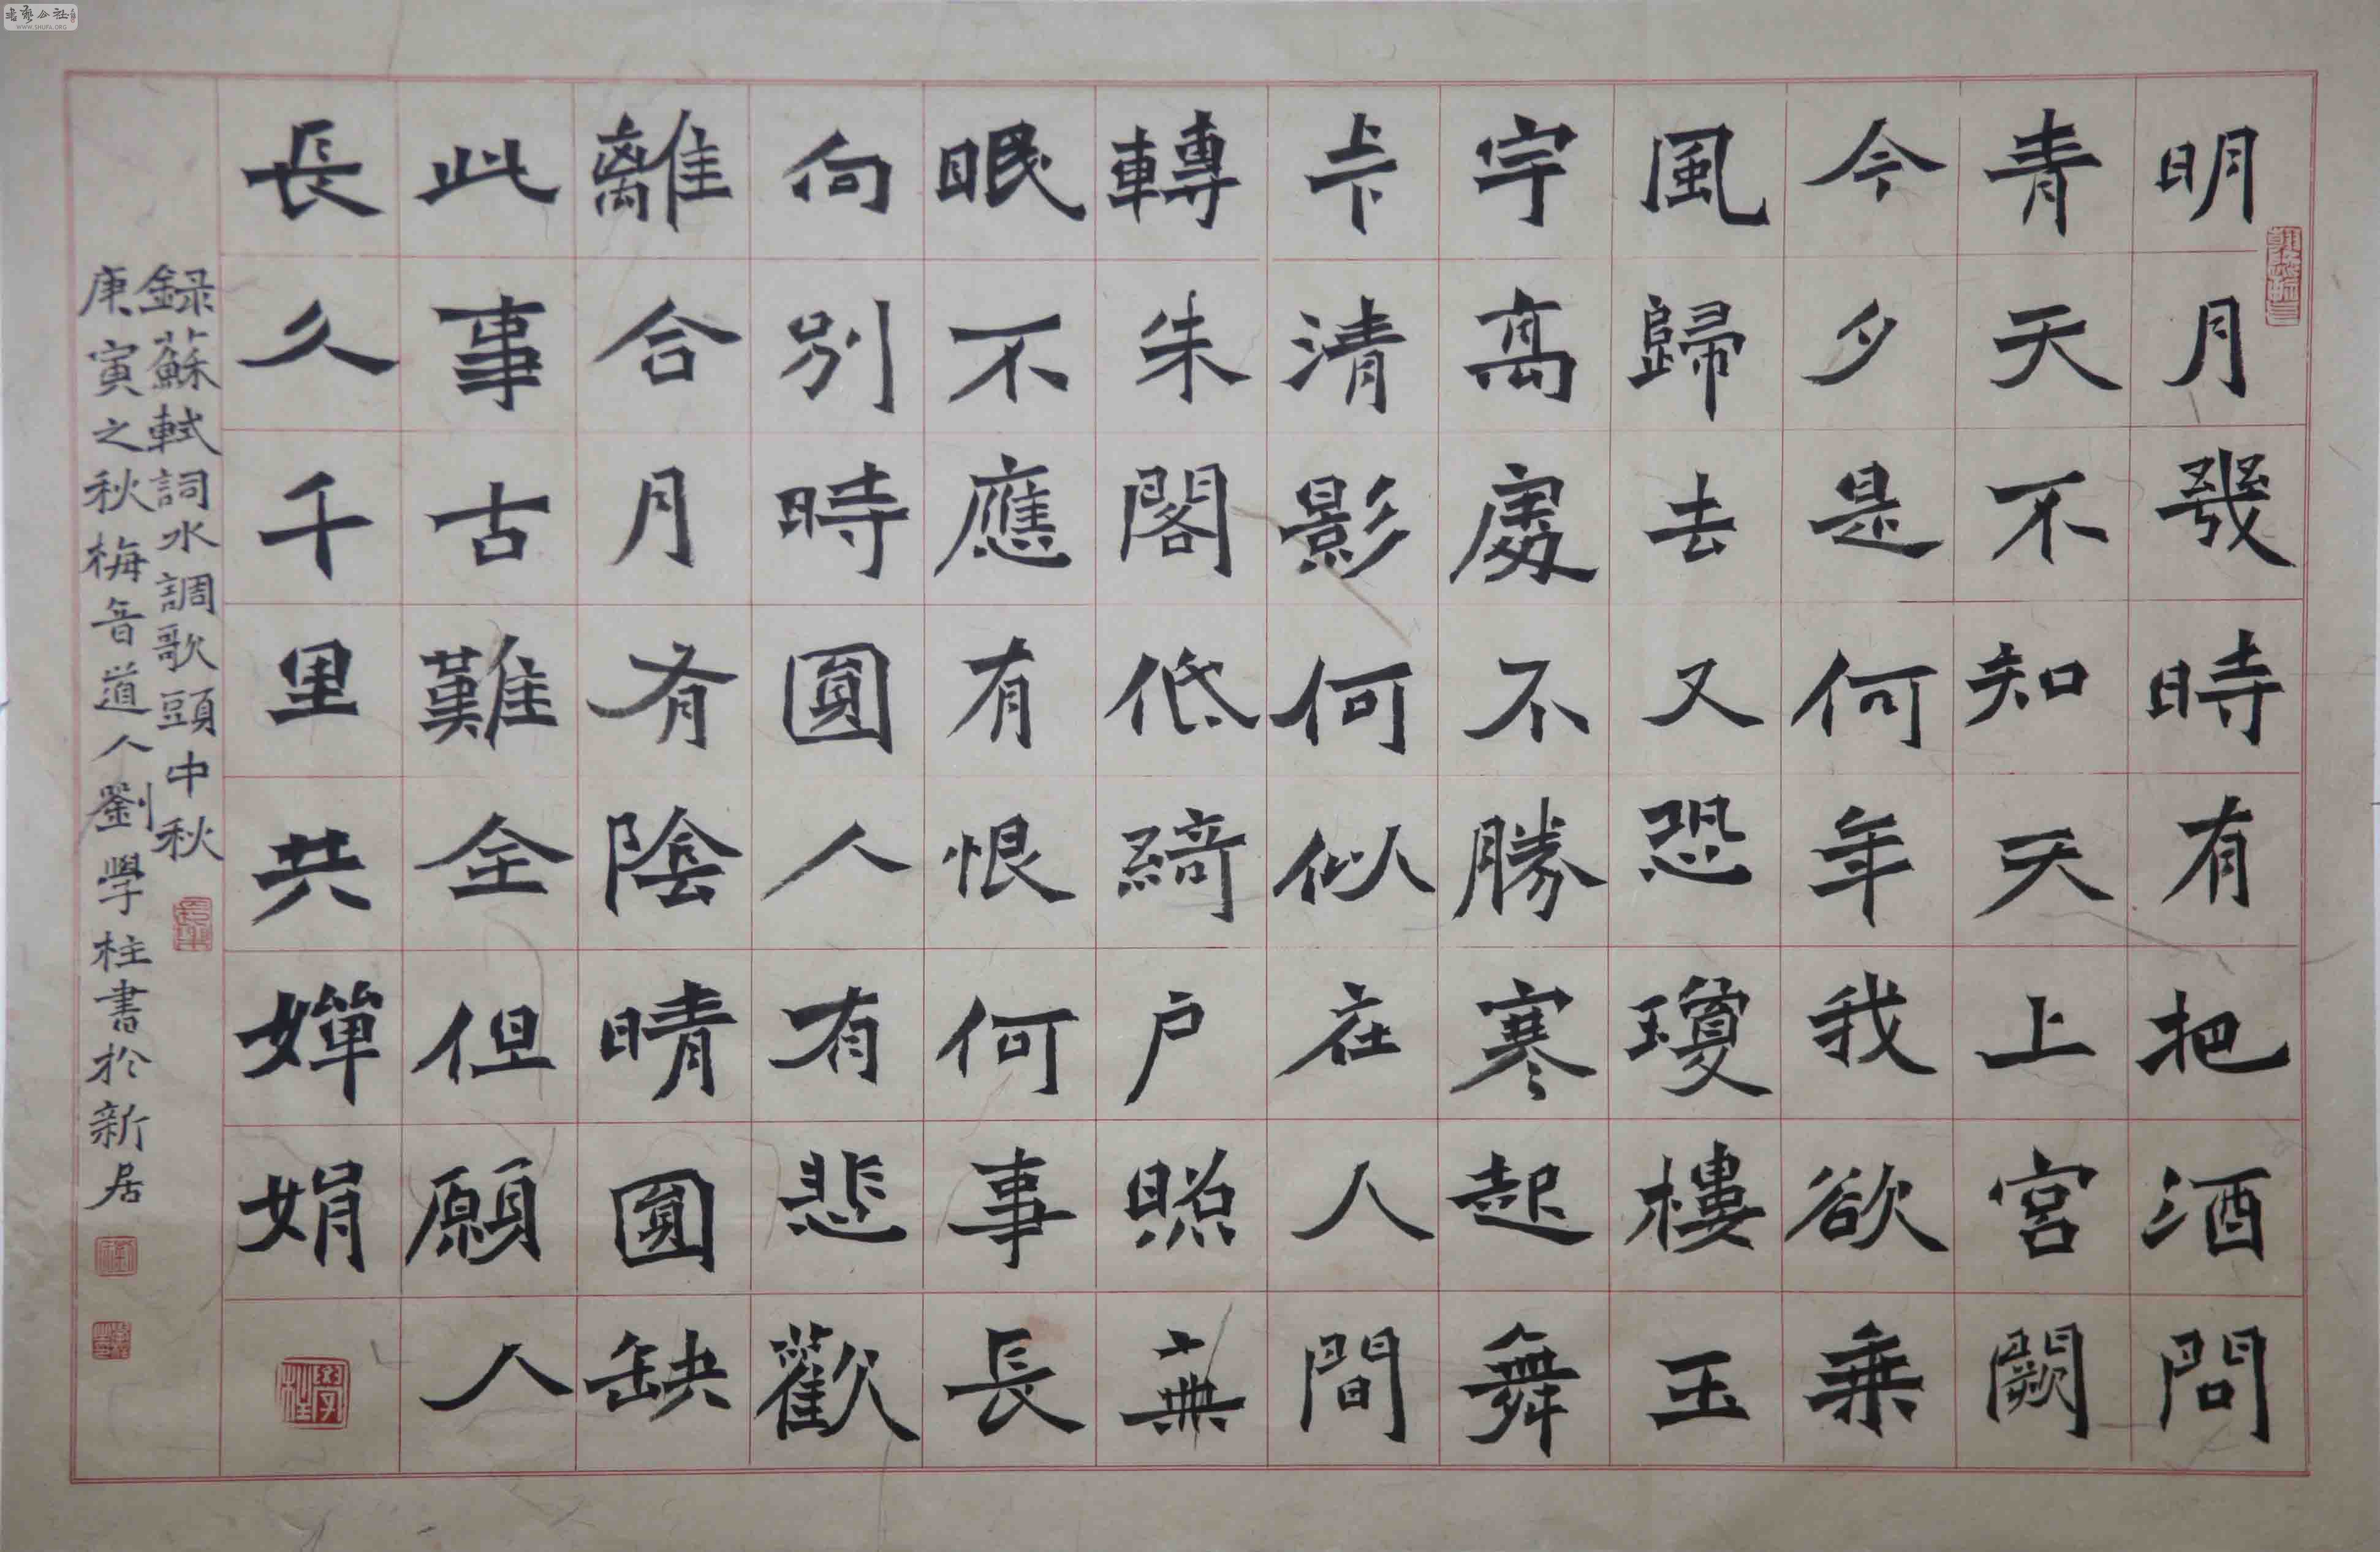 明月幾時有把酒問
青天不知天上宮闕
今夕是何年我欲乘
風歸去又恐瓊樓玉
宇高處不勝寒起舞
弄清影何似在人間
轉朱閣低綺户照無
眠不應有恨何事長
向別時圓人有悲歡
離合月有陰晴圓缺
此事古難全但願人
長久千里共嬋娟
學柱
録蘇軾詞水調歌頭中秋
庚寅之秋梅音道人劉學柱書於新居
书艺公社
WWW.SHUFA.ORG